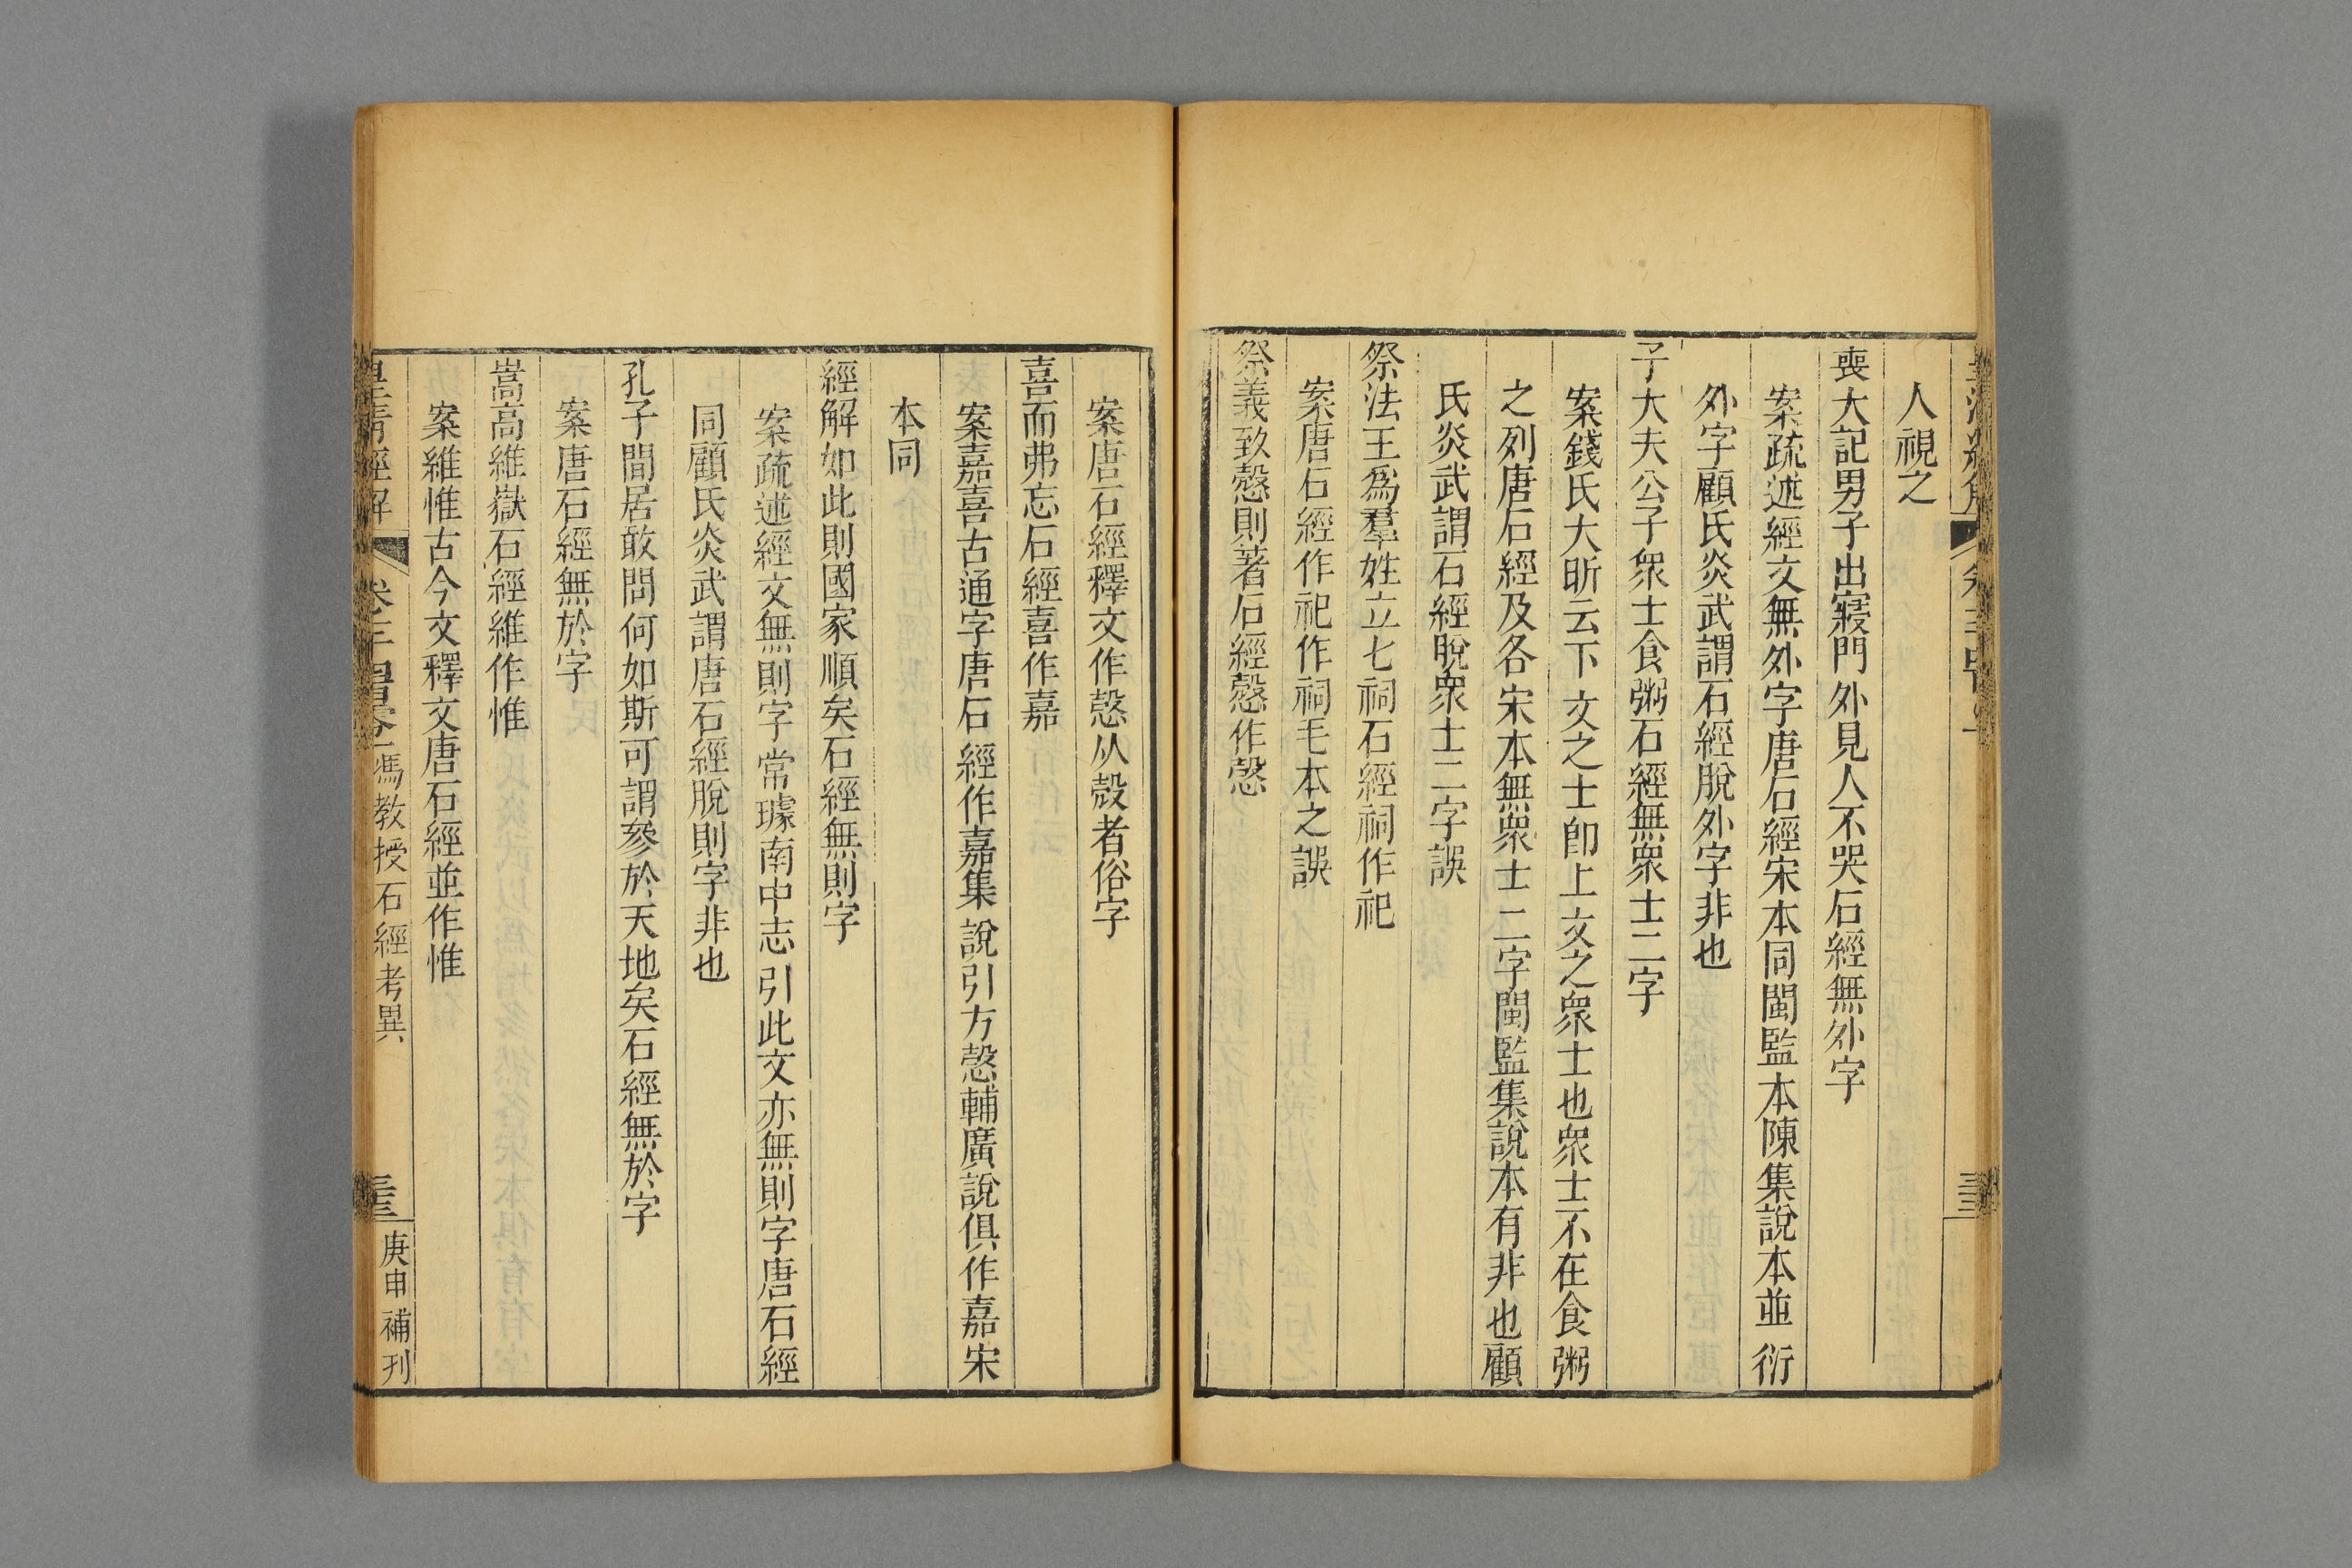 人視之
喪大記男子出寢門外見人不哭石經無外字
案疏述經文無外字唐石經宋本同閩監本陳集說本並衍
外字顧氏炎武謂石經脫外字非也
子大夫公子眾士食粥石經無眾士二字
案錢氏大昕云下文之士卽上文之眾士也眾士不在食粥
之列唐石經及各宋本無眾士二字閩監集說本有非也顧
氏炎武謂石經脫眾士二字誤
祭法王爲羣姓立七祠石經祠作祀
案唐石經作祀作祠毛本之誤
祭義致慤則著石經慤作愨
案唐石經釋文作愨从殼者俗字
喜而弗忘石經喜作嘉
案嘉喜古通字唐石經作嘉集說引方愨輔廣說俱作嘉宋
本同
經解如此則國家順矣石經無則字
案疏述經文無則字常璩南中志引此文亦無則字唐石經
同顧氏炎武謂唐石經脫則字非也
孔子閒居敢問何如斯可謂參於天地矣石經無於字
案唐石經無於字
嵩高維嶽石經維作惟
案維惟古今文釋文唐石經並作惟
皇清經解
馮教授石經考異
庚申補刊